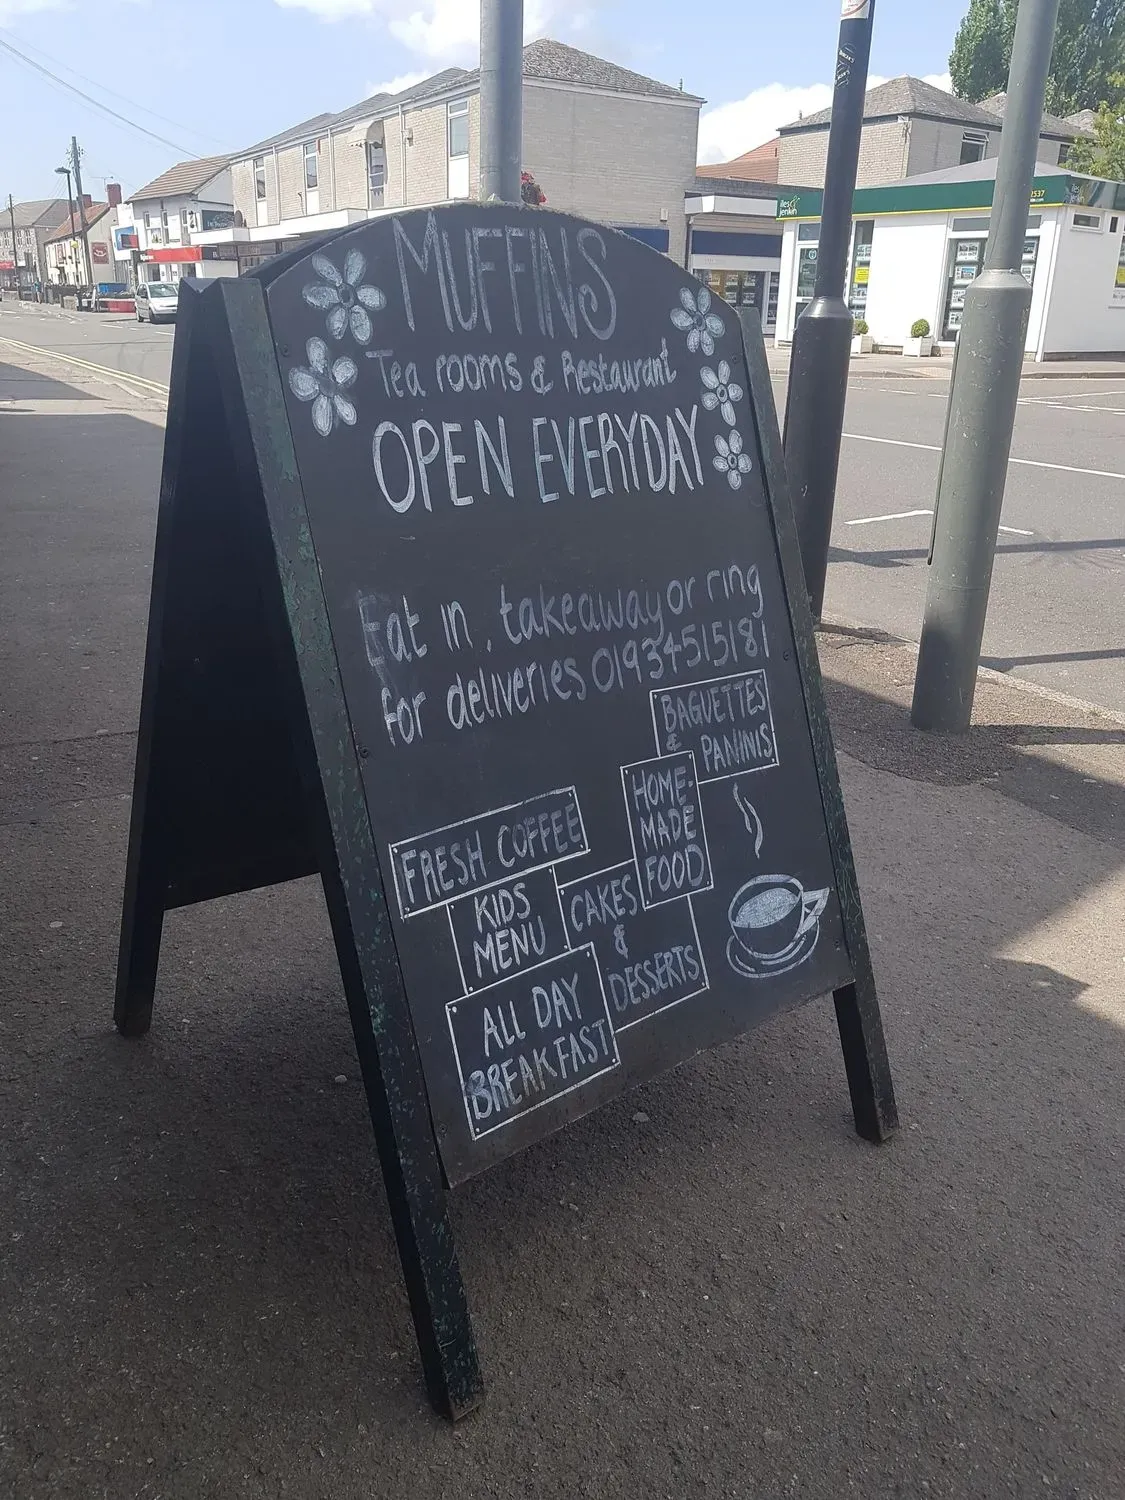 MUFFINS
Tea rooms & Restaurant
OPEN EVERYDAY
Eat in, takeaway or ring
for deliveries 01934515181
BAGUETTES
& PANINIS
HOME-
MADE
FOOD
FRESH COFFEE
KIDS
MENU
CAKES
&
DESSERTS
ALL DAY
BREAKFAST